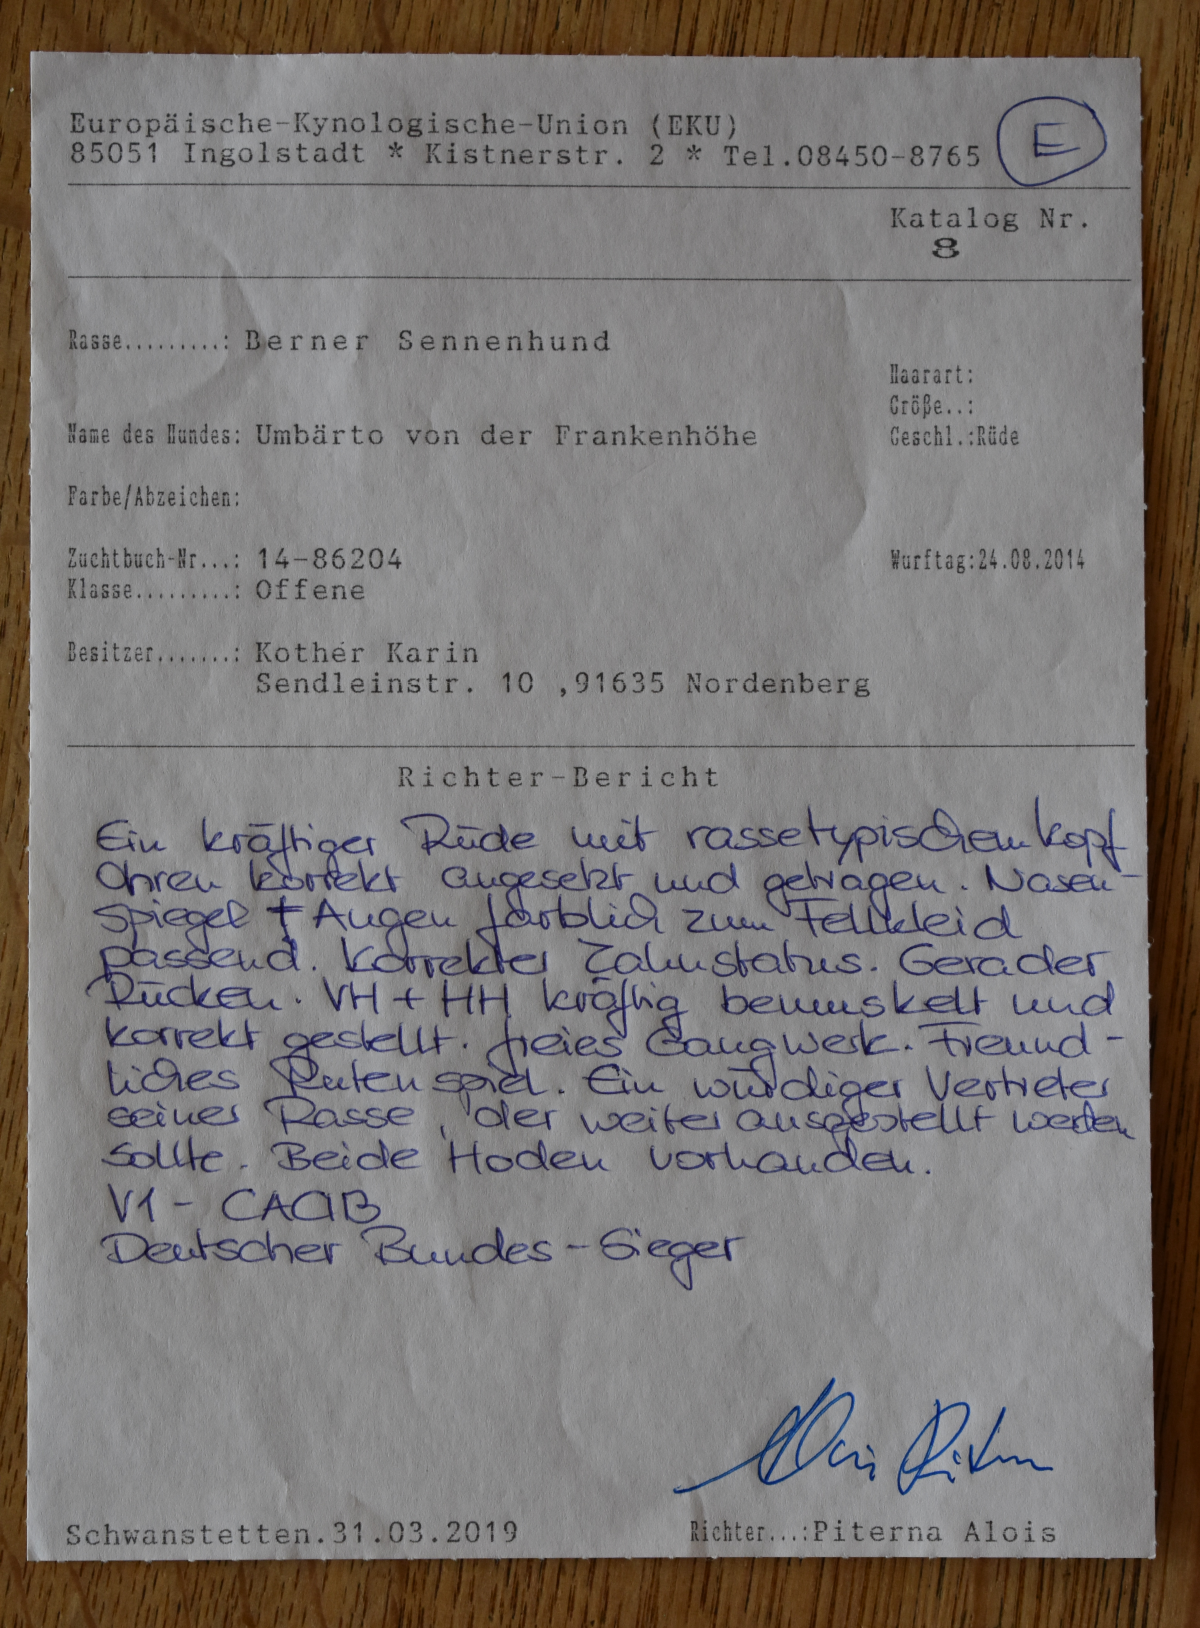 Europäische-Kynologische-Union (EKU)
85051 Ingolstadt * Kistnerstr. 2 * Tel.08450-8765
E
Katalog Nr.
8
Rasse.........: Berner Sennenhund
Haarart:
Größe..:
Name des Hundes: Umbärto von der Frankenhöhe
Geschl.:Rüde
Farbe/Abzeichen:
Zuchtbuch-Nr...: 14-86204
Wurftag:24.08.2014
Klasse.........: Offene
Besitzer.......: Kother Karin
Sendleinstr. 10 ,91635 Nordenberg
Richter-Bericht
Ein kräftiger Rüde mit rassetypischem Kopf
Ohren korrekt angesetzt und getragen. Nasen-
spiegel + Augen farblich zum Fellkleid
passend. Korrekter Zahnstatus. Gerader
Rücken. VH + HH kräftig bemuskelt und
korrekt gestellt. freies Gangwerk. Freund-
liches Rutenspiel. Ein würdiger Vertreter
seiner Rasse, der weiter ausgestellt werden
sollte. Beide Hoden vorhanden.
V1 - CACIB
Deutscher Bundes-Sieger
Schwanstetten.31.03.2019
Richter...:Piterna Alois